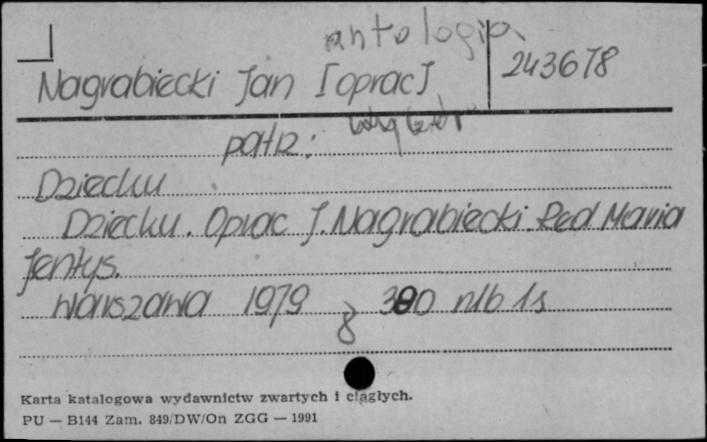 antologia
Nagrabiecki Jan [oprac] 243678
patrz: wybór
Dziecku
Dziecku. Oprac J. Nagrabiecki. Red Maria
Jentys.
Warszawa 1979 8 380 nlb 1s
Karta katalogowa wydawnictw zwartych i ciągłych.
PU — B144 Zam. 849/DW/On ZGG — 1991